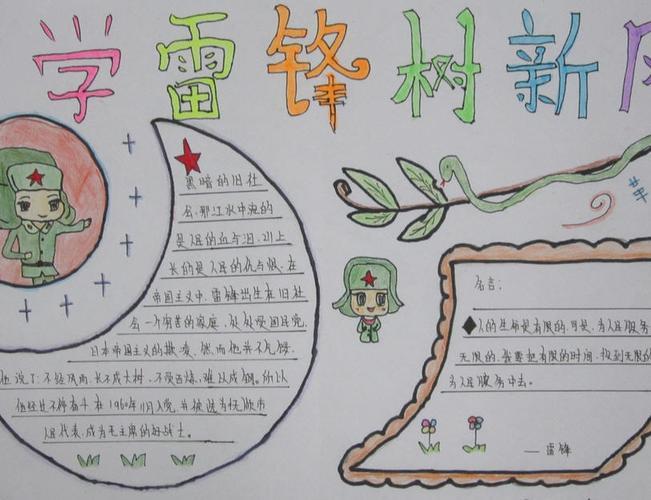 学雷锋树新风
黑暗的旧社
会,那江水中流的
是人民的血与泪,山上
长的是人民的仇与恨,在
帝国主义中,雷锋出生在旧社
会一个穷苦的家庭,处处受国民党,
日本帝国主义的欺凌,然而他并不气馁,
他说了:不经风雨,长不成大树,不受百炼,难以成钢。所以
他经过不停奋斗在1960年11月入党,并被选为抚顺市
人民代表,成为毛主席的好战士。
名言:
◆人的生命是有限的,可是,为人民服务
无限的,我要把有限的时间,投到无限的
为人民服务中去。
——雷锋